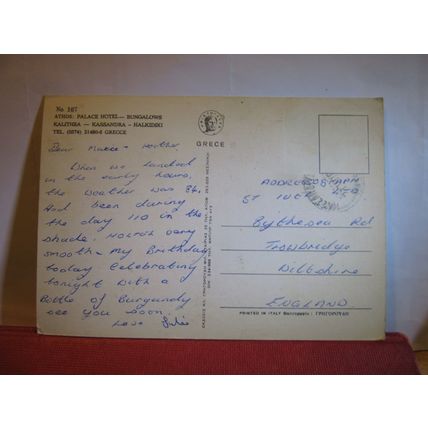 No 187
ATHOS PALACE HOTEL — BUNGALOWS
KALITHEA — KASSANDRA — HALKIDIKI
TEL. (0374) 21480-5 GREECE
GRECE
Dear
When we landed
in the early hours,
the weather was 84.
And been during
the day 110 in the
shade.
smooth - My Birthday
today. Celebrating
tonight with a
Bottle of Burgundy
see you soon
Love
ST
Rd
Trowbridge
Wiltshire
ENGLAND
PRINTED IN ITALY ΓΡΗΓΟΡΟΥΔΗ